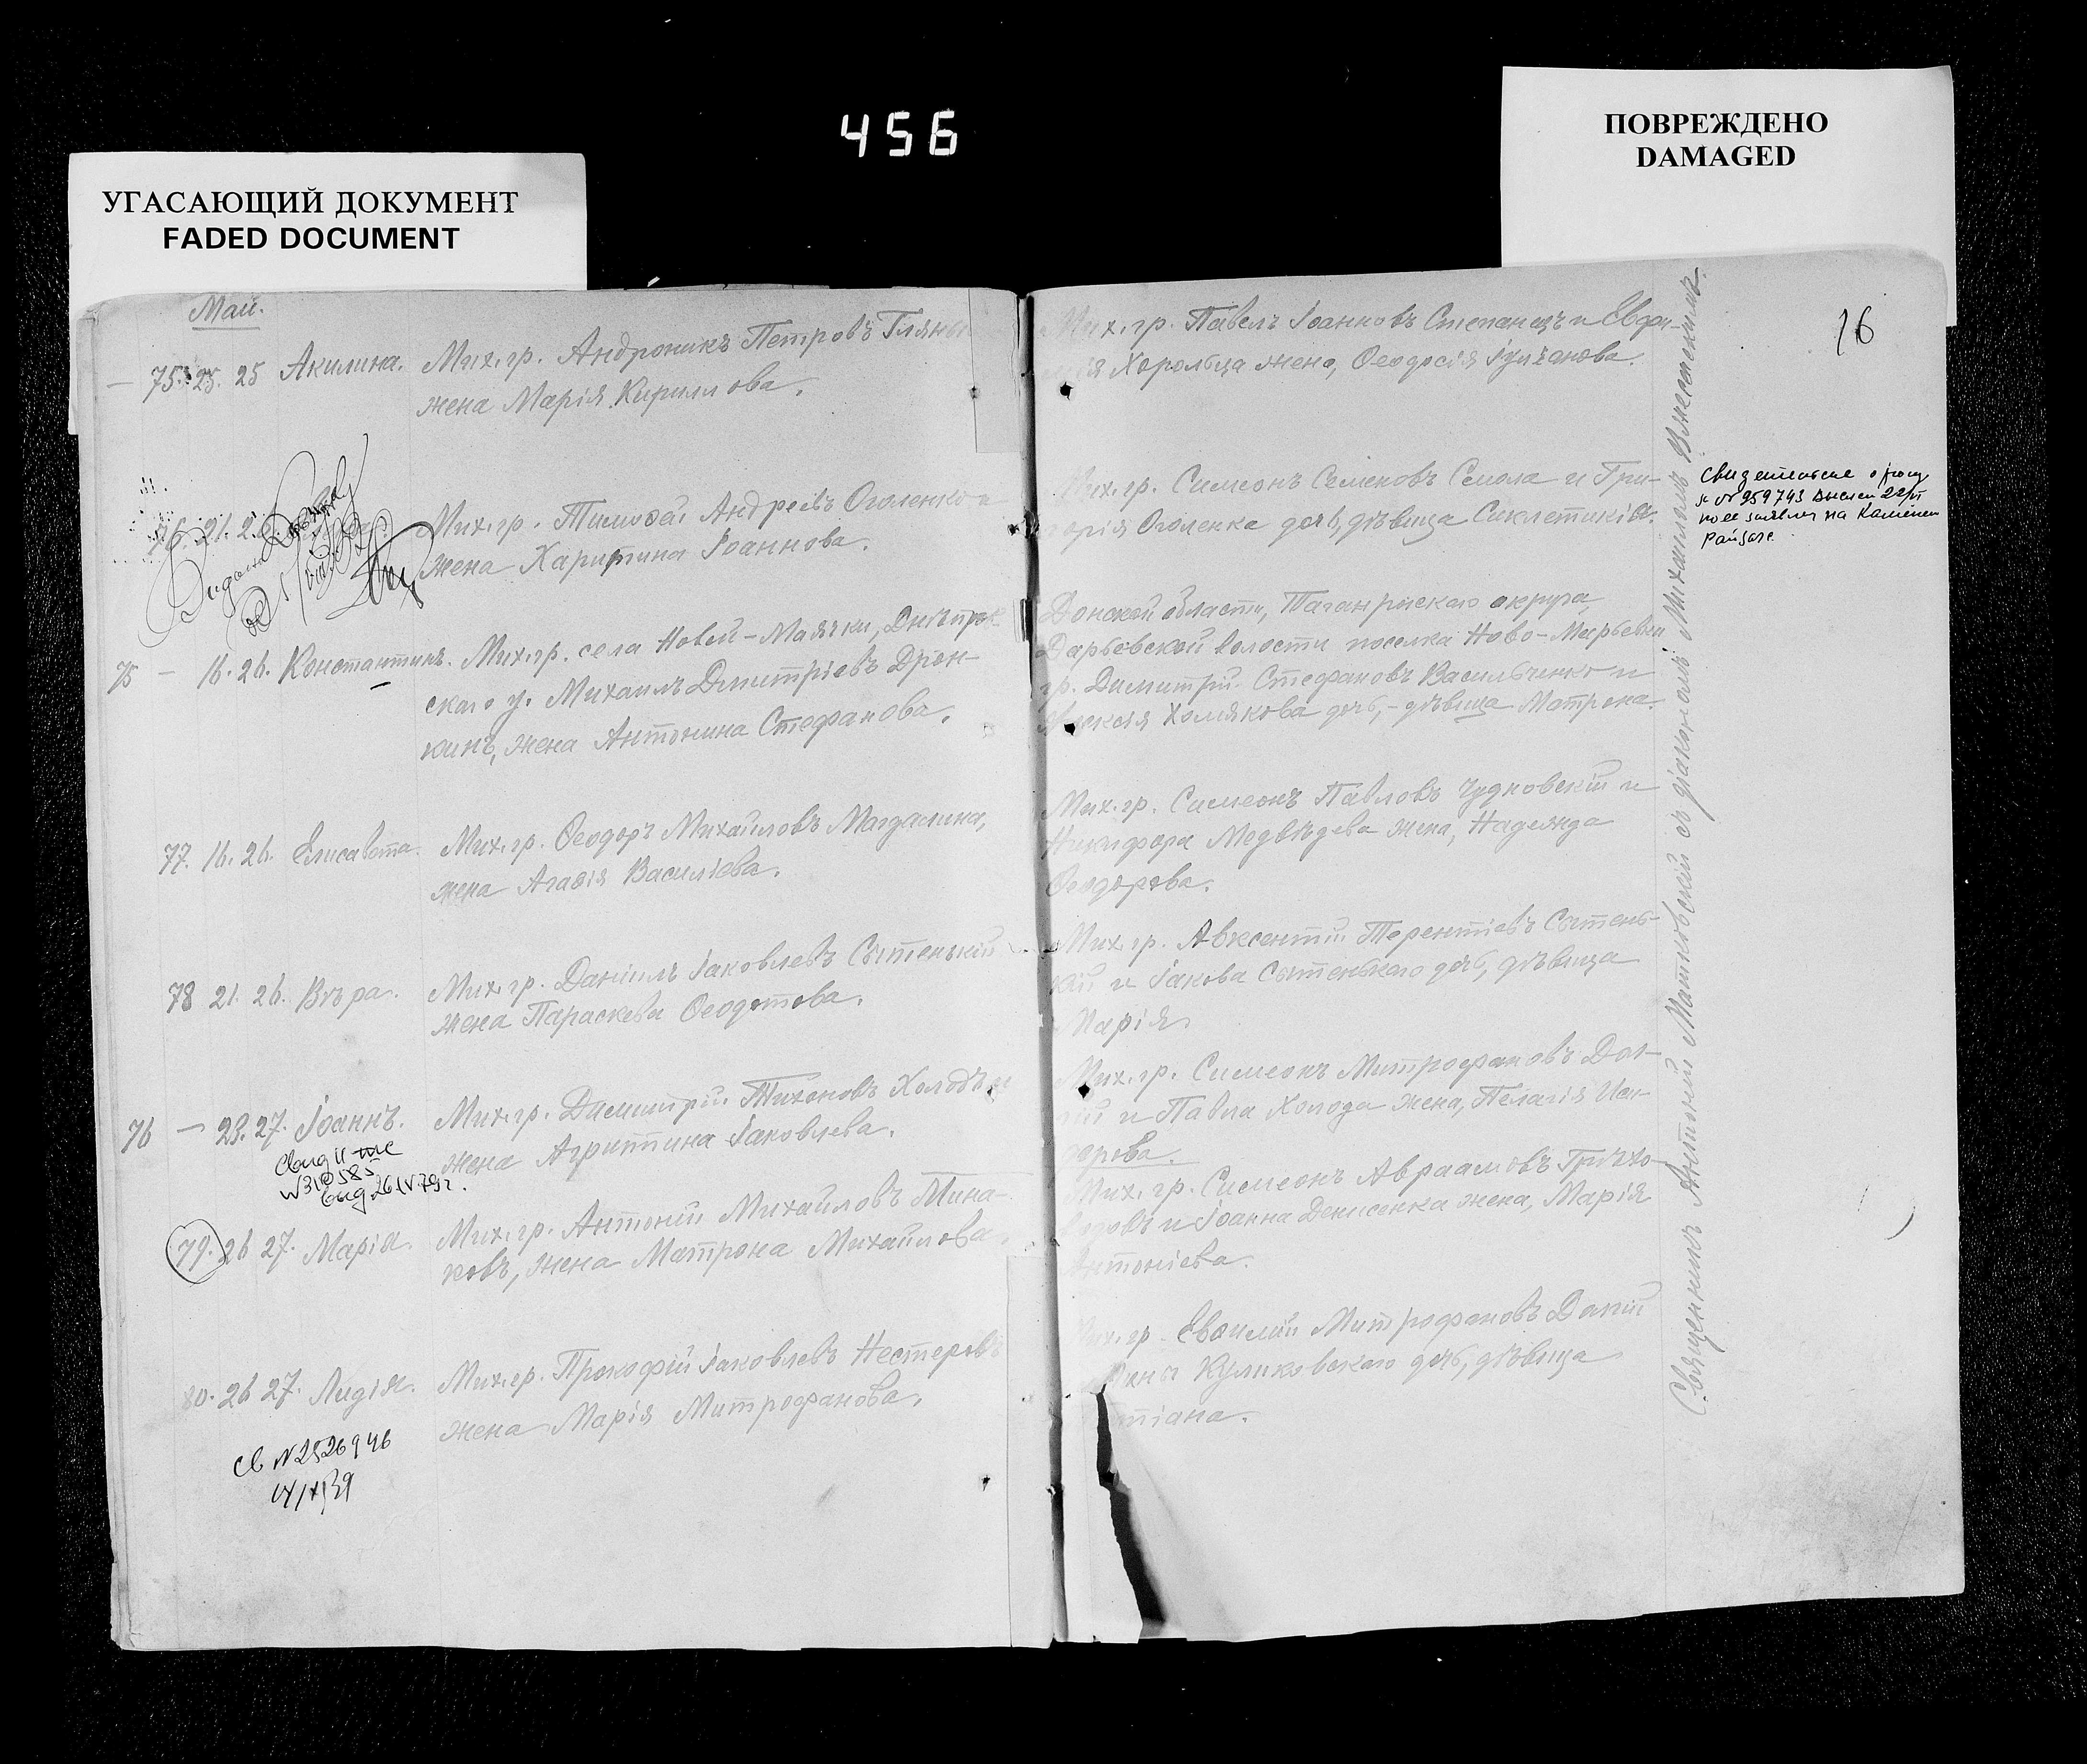 456
УГАСАЮЩИЙ ДОКУМЕНТ
FADED DOCUMENT
ПОВРЕЖДЕНО
DAMAGED
Май.
— 75. 25. 25 Акилина. Мих. гр. Андроникъ Петровъ
жена Марія Кириллова.
76. 21. Мих. гр. Тимоѳей Андреевъ Оголенко
жена Харитина Іоаннова.
75 — 16. 26. Константинъ. Мих. гр. села Новой-Маячки, Днѣпров-
скаго у. Михаилъ Димитріевъ Дрон-
кинъ, жена Антонина Стефанова.
77. 16. 26. Елисавета. Мих. гр. Ѳеодоръ Михайловъ Магдалина,
жена Агаѳія Василіева.
78 21. 26. Вѣра. Мих. гр. Даніилъ Іаковлевъ Сытенькій
жена Параскева Ѳеодотова.
76 — 23. 27. Іоаннъ. Мих. гр. Димитрій Тихоновъ Холодъ и
жена Агриппина Іаковлева.
79. 26 27. Марія. Мих. гр. Антоній Михайловъ Мина-
ковъ, жена Матрона Михайлова.
80. 26 27. Лидія. Мих. гр. Прокофій Іаковлевъ Нестеровъ
жена Марія Митрофанова.
св N 2526946
16
Мих. гр. Павелъ Іоанновъ Степанецъ и Евфи-
мія Хорольца жена, Ѳеодосія
Мих. гр. Симеонъ Семеновъ Семола и Гри-
горія Оголенка дочь, дѣвица Синклетикія.
Донской области, Таганрогскаго округа,
Дарьевской волости поселка Ново-Марьевки
гр. Димитрій Стефановъ Васильченко и
Алексія Хомякова дочь, - дѣвица Матрона.
Мих. гр. Симеонъ Павловъ Чудновскій и
Никифора Медвѣдева жена, Надежда
Ѳеодорова.
Мих. гр. Авксентій Терентіевъ Сытень-
кій и Іакова Сытенькаго дочь, дѣвица
Марія.
Мих. гр. Симеонъ Митрофановъ Дол-
гій и Павла Холода жена, Пелагія Иси-
дорова.
Мих. гр. Симеонъ Авраамовъ Грѣхо-
водовъ и Іоанна Денисенка жена, Марія
Антоніева.
Мих. гр. Митрофановъ
Куликовскаго дочь, дѣвица
Татіана.
Священникъ Антоній Матковскій съ діакономъ Михаиломъ